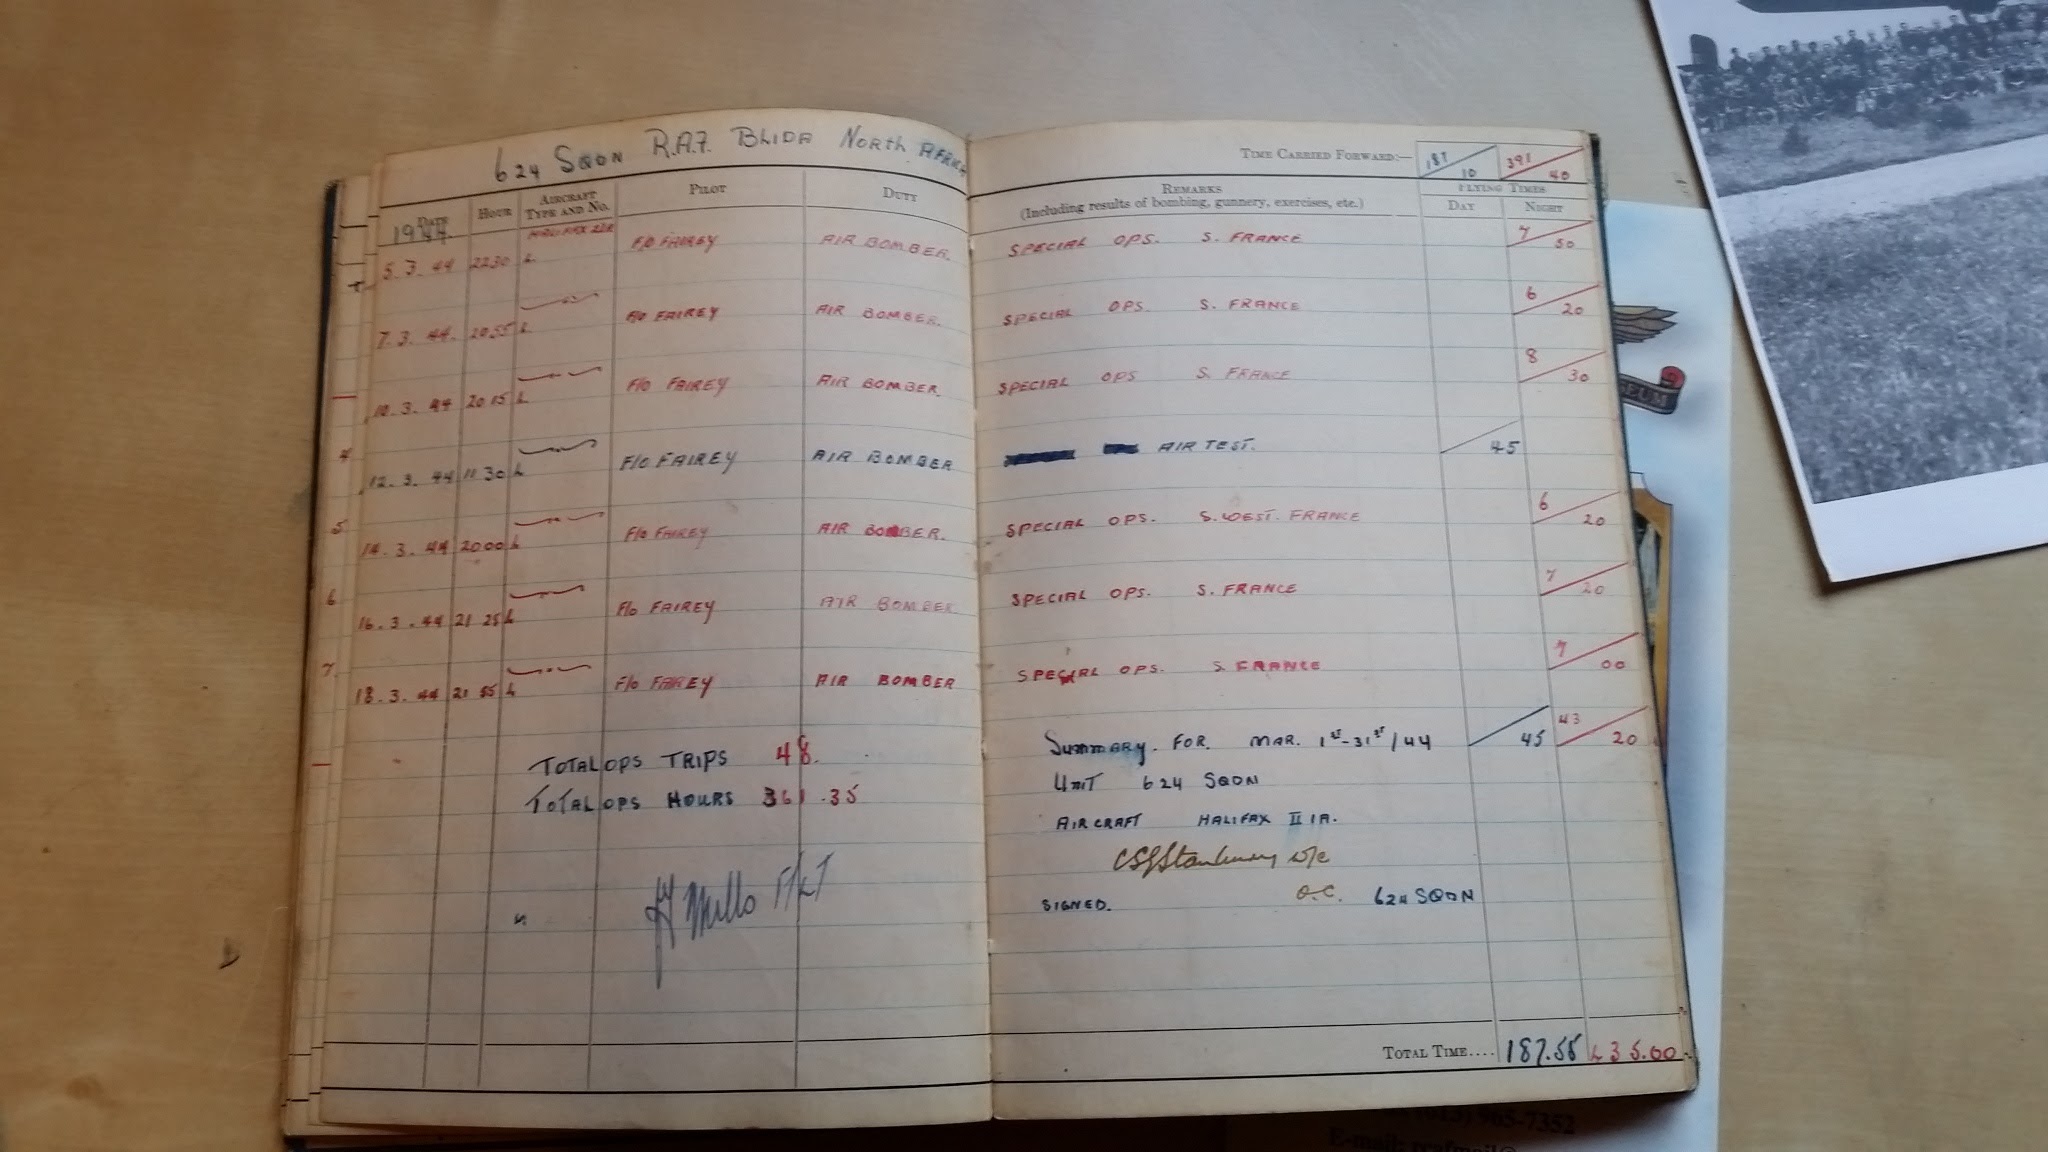 624 SQDN R.A.F. BLIDA NORTH AFRICA
TIME CARRIED FORWARD:— 187 10 391 40
DATE HOUR AIRCRAFT TYPE AND NO. PILOT DUTY REMARKS (Including results of bombing, gunnery, exercises, etc.) FLYING TIMES DAY NIGHT
1944
HALIFAX
5.3.44 2230 L F/O FAIREY AIR BOMBER. SPECIAL OPS. S. FRANCE 7 50
7.3.44. 2055 L F/O FAIREY AIR BOMBER. SPECIAL OPS. S. FRANCE 6 20
10.3.44 2015 L F/O FAIREY AIR BOMBER. SPECIAL OPS S. FRANCE 8 30
4 12.3.44 1130 L F/O FAIREY AIR BOMBER AIR TEST. 45
5 14.3.44 2000 L F/O FAIREY AIR BOMBER. SPECIAL OPS. S. WEST. FRANCE 6 20
6 16.3.44 2125 L F/O FAIREY AIR BOMBER SPECIAL OPS. S. FRANCE 7 20
7. 18.3.44 2155 L F/O FAREY AIR BOMBER SPECIAL OPS. S. FRANCE 7 00
TOTAL OPS TRIPS 48.
TOTAL OPS HOURS 361.35
Summary. FOR. MAR. 1st-31st/44 45 43 20
UNIT 624 SQDN
AIRCRAFT HALIFAX II 1A.
W/C
SIGNED. O.C. 624 SQDN
F/LT
TOTAL TIME.... 187.55 435.00
(613) 965-7352
E-mail: